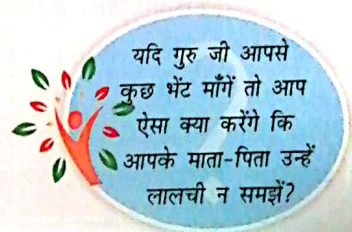 यदि गुरु जी आपसे
कुछ भेंट माँगें तो आप
ऐसा क्या करेंगे कि
आपके माता-पिता उन्हें
लालची न समझें?